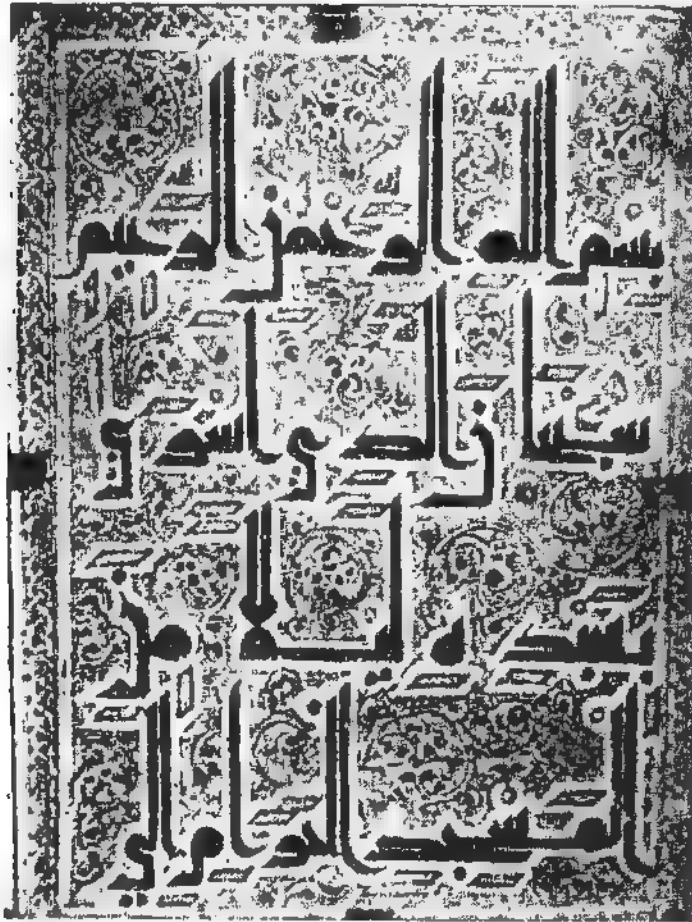 بسم الله الرحمن الرحيم
سبحان الذي اسرى
بعبده ليلا من
المسجد الحرام